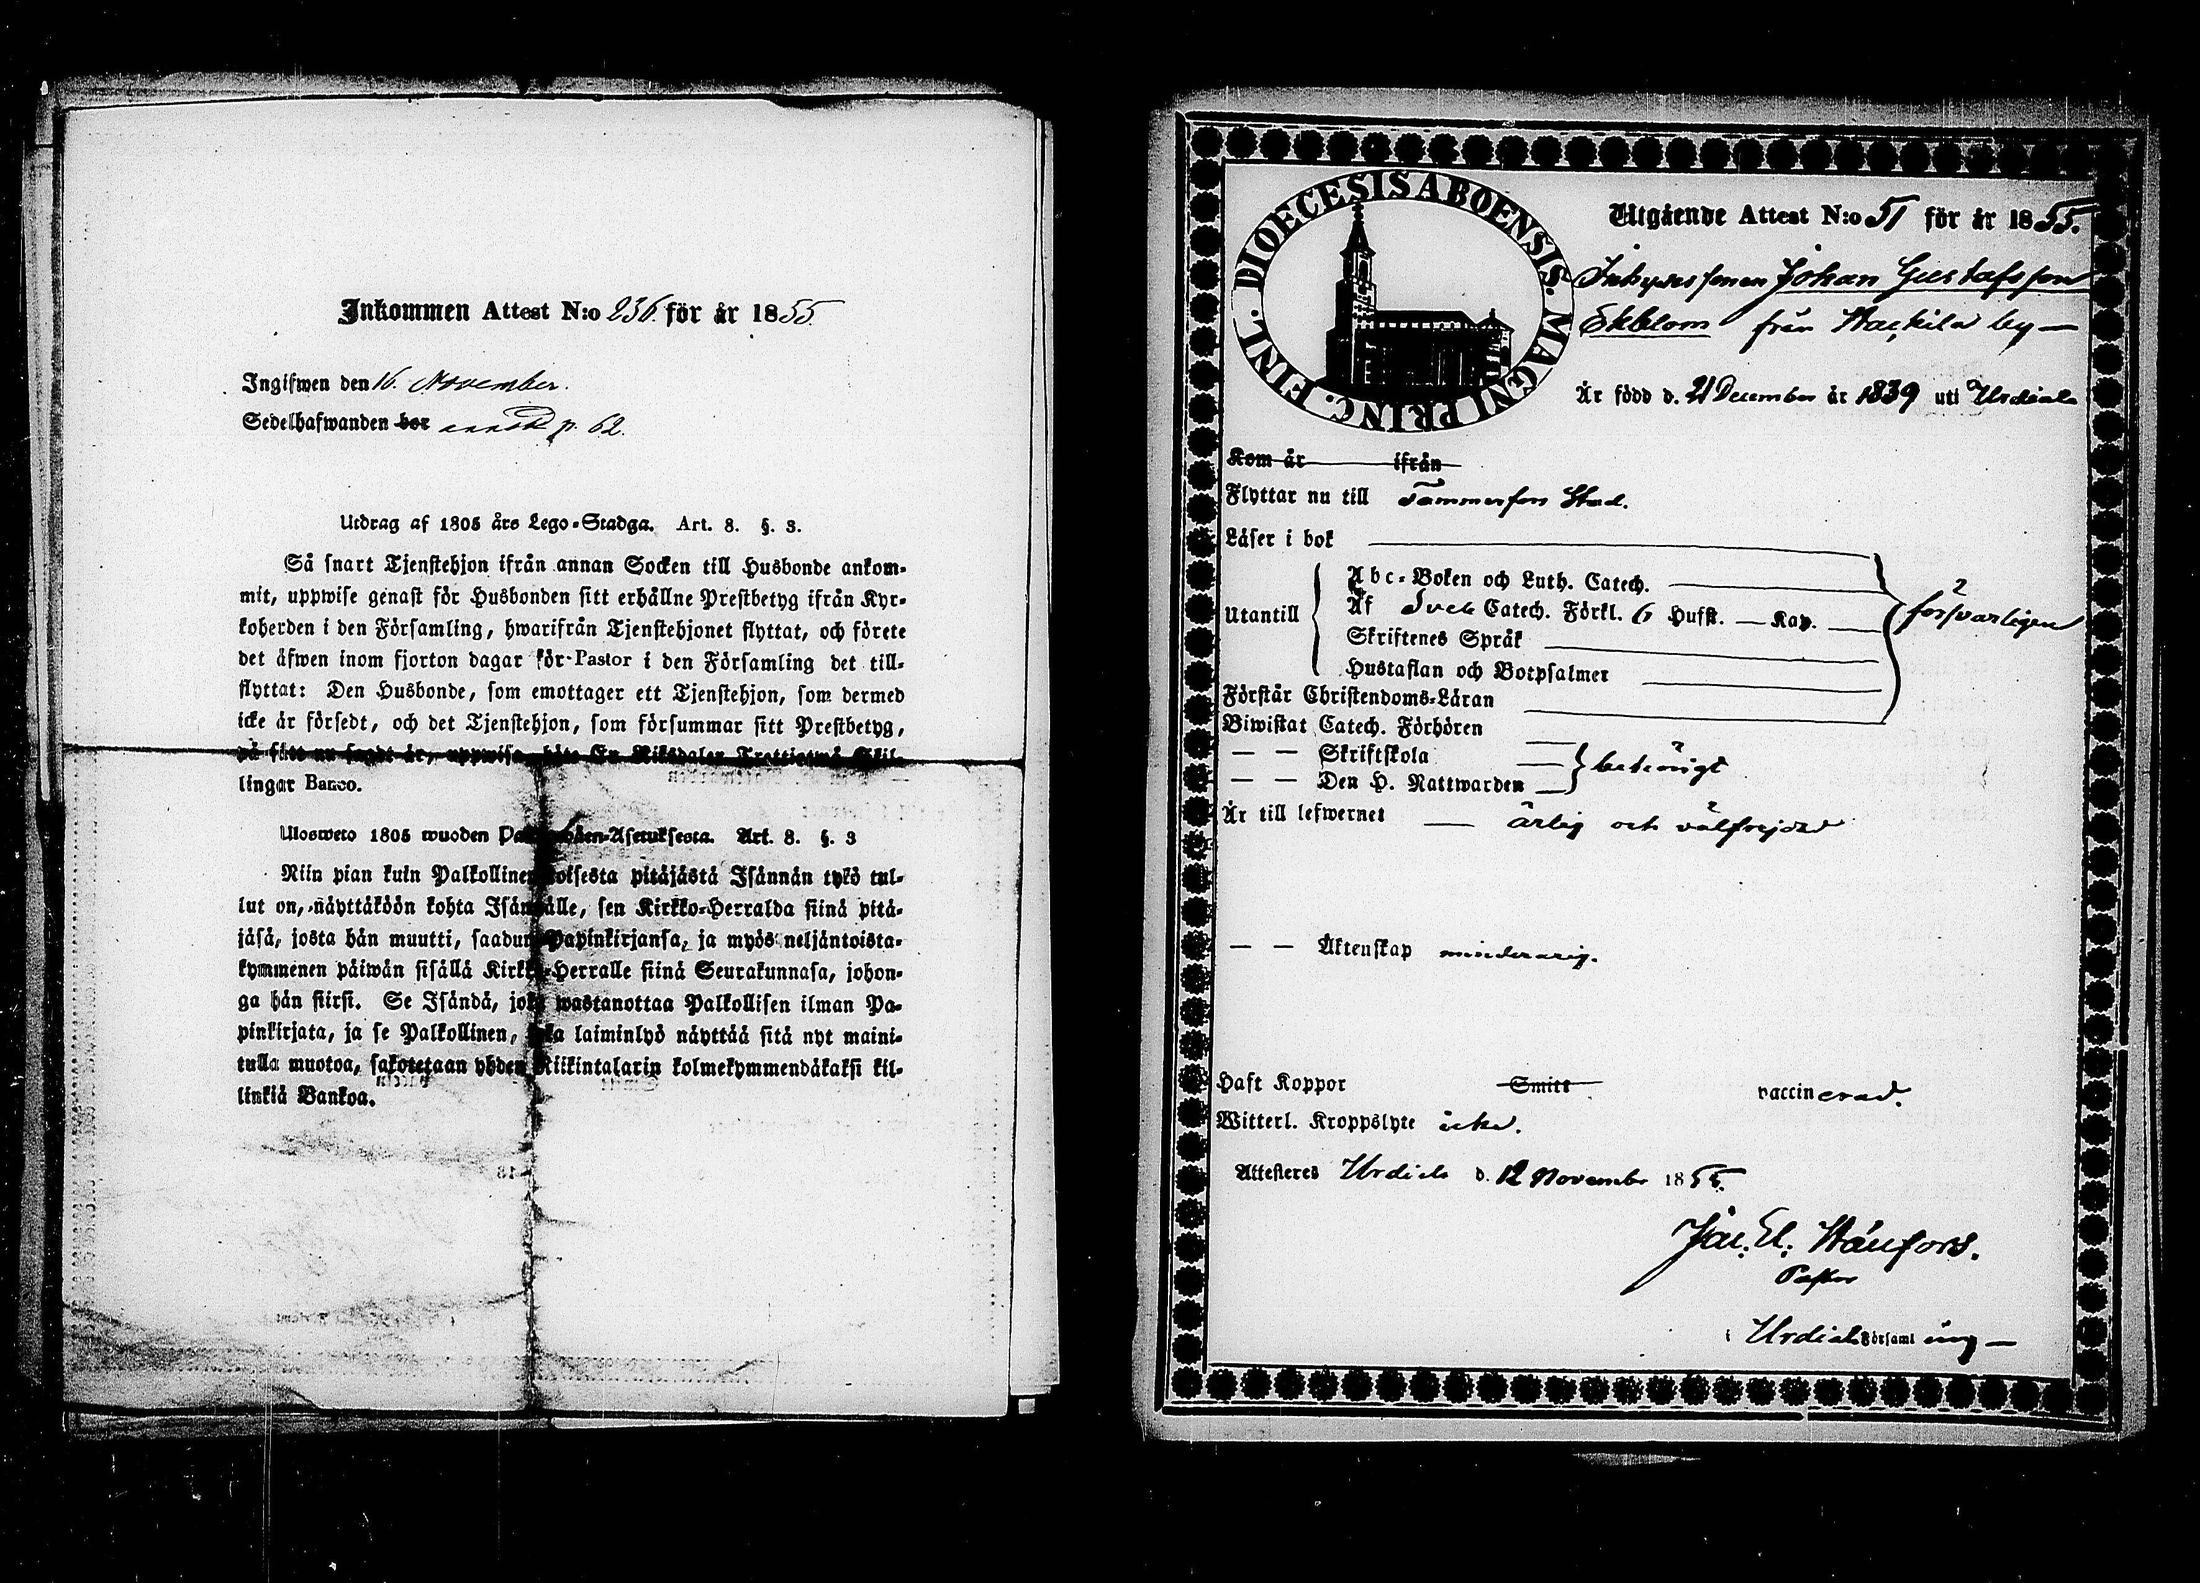 Inkommen Attest N:o 236. för år 1855.
Ingifwen den 16. November.
Sedelhafwanden bor p. 62.
Utdrag af 1805 års Lego-Stadga. Art. 8. §. 3.
Så snart Tjenstehjon ifrån annan Socken till Husbonde ankom-
mit, uppwise genast för Husbonden sitt erhållne Prestbetyg ifrån Kyr-
koherden i den Församling, hwarifrån Tjenstehjonet flyttat, och förete
det äfwen inom fjorton dagar för Pastor i den Församling det till-
flyttat: Den Husbonde, som emottager ett Tjenstehjon, som dermed
icke är försedt, och det Tjenstehjon, som försummar sitt Prestbetyg,
på sätt nu sagdt är, uppwisa, böte En Riksdaler Trettiotwå Skil-
lingar Banco.
Ulosweto 1805 wuoden Asetuksesta. Art. 8. §. 3
Niin pian kuin Palkollinen toisesta pitäjästä Isännän tykö tul-
lut on, näyttäköön kohta Isännälle, sen Kirkko-Herralda siinä pitä-
jäsä, josta hän muutti, saadun Papinkirjansa, ja myös neljäntoista-
kymmenen päiwän sisällä Kirkko-Herralle siinä Seurakunnasa, johon-
ga hän siirsi. Se Isändä, joka wastanottaa Palkollisen ilman Pa-
pinkirjata, ja se Palkollinen, joka laiminlyö näyttää sitä nyt maini-
tulla muotoa, sakotetaan yhden Riikintalarin kolmekymmendäkaksi kil-
linkiä Bankoa.
DIOECESIS ABOENSIS. MAGNI PRINC. FINL.
Utgående Attest N:o 51 för år 1855.
Inhysessonen Johan Gustafsson
Ekblom från by
Är född d. 21 December år 1839 uti Urdiala
Kom år ifrån
Flyttar nu till Tammerfors Stad.
Läser i bok
Abc-Boken och Luth. Catech.
Utantill Af Sveb Catech. Förkl. 6 Hufst. — Kap. försvarligen
Skriftenes Språk
Hustaflan och Botpsalmer
Förstår Christendoms-Läran
Biwistat Catech. Förhören
— — Skriftskola
— — Den H. Nattwarden
Är till lefwernet — ärlig och välfrejdad
— — Äktenskap minderårig.
Haft Koppor Smitt vaccinerad.
Witterl. Kroppslyte icke.
Attesteres Urdiala d. 12 November 1855.
Pastor
i Urdiala Församling